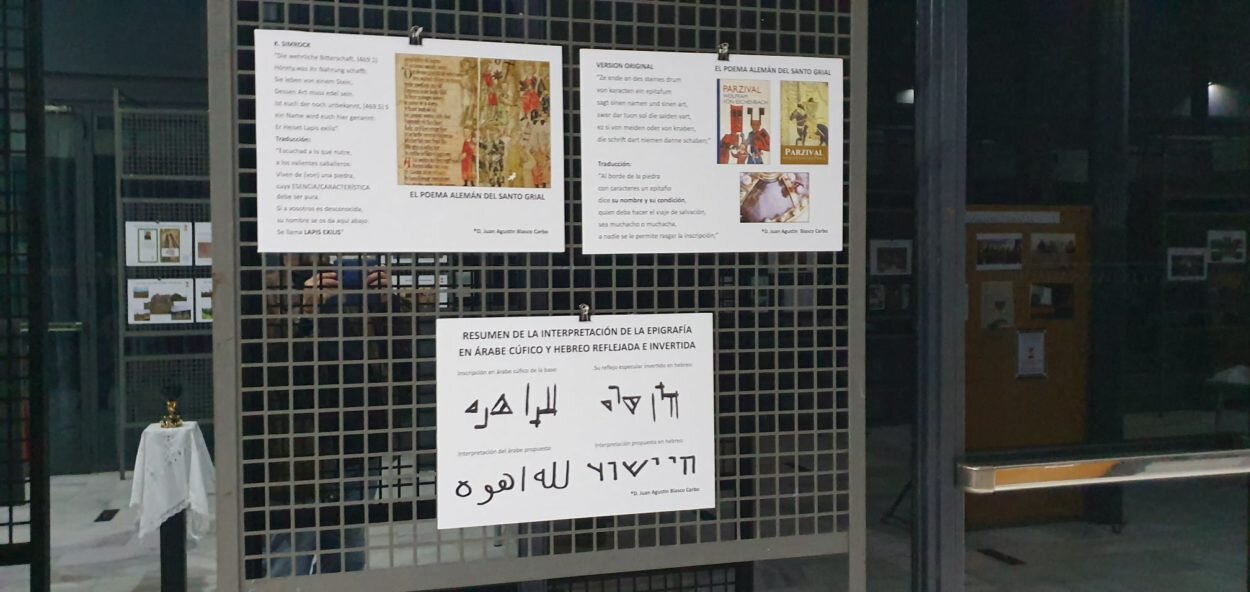 K. SIMROCK
"Die wehrliche Ritterschaft, (469.1)
Hörnt, was ihr Nahrung schafft:
Sie leben von einem Stein,
Dessen Art muss edel sein.
Ist euch der noch unbekannt, (469.5) S
ein Name wird euch hier genannt:
Er Heiset Lapis exilis"
Traducción:
"Escuchad a lo que nutre,
a los valientes caballeros:
Viven de (von) una piedra,
cuya ESENCIA/CARACTERÍSTICA
debe ser pura.
Si a vosotros es desconocida,
su nombre se os da aquí abajo:
Se llama LAPIS EXILIS"
EL POEMA ALEMÁN DEL SANTO GRIAL
*D. Juan Agustín Blasco Carbo
VERSION ORIGINAL
"Ze ende an des steines drum
von karacten ein epitafum
sagt sinen namen und sinen art,
swer dar tuon sol die salden vart,
ez si von meiden oder von knaben,
die schrift dart niemen danne schaben;"
Traducción:
"Al borde de la piedra
con caracteres un epitafio
dice su nombre y su condición,
quien deba hacer el viaje de salvación,
sea muchacho o muchacha,
a nadie se le permite rasgar la inscripción;"
EL POEMA ALEMÁN DEL SANTO GRIAL
PARZIVAL
WOLFRAM
VON ESCHENBACH
PARZIVAL
*D. Juan Agustín Blasco Carbo
RESUMEN DE LA INTERPRETACIÓN DE LA EPIGRAFÍA
EN ÁRABE CÚFICO Y HEBREO REFLEJADA E INVERTIDA
Inscripción en árabe cúfico de la base:
Su reflejo especular invertido en hebreo:
Interpretación del árabe propuesta:
Interpretación propuesta en hebreo:
لله اهوه
חי ישוע
*D. Juan Agustín Blasco Carbo